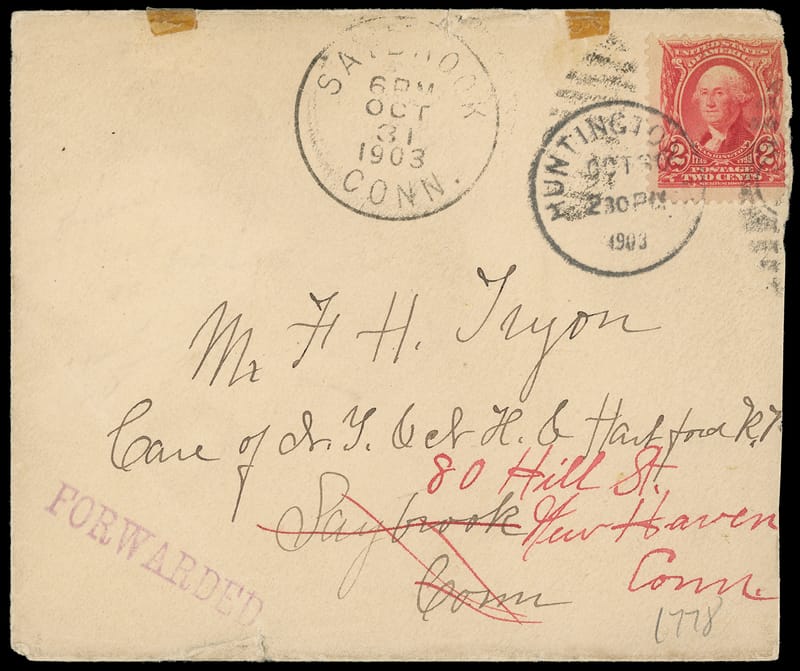 SAYBROOK
6 PM
OCT
31
1903
CONN.
HUNTINGTON
OCT 30
2 30 PM
1903
UNITED STATES
OF AMERICA
WASHINGTON
2 2
POSTAGE
TWO CENTS
Mr F H. Tryon
Care of N. Y. & N H. & Hartford R.R
80 Hill St.
Saybrook New Haven
Conn Conn.
FORWARDED
1778